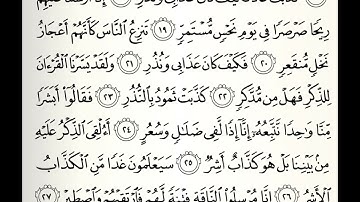 رِيحًا صَرْصَرًا فِى يَوْمِ نَحْسٍ مُّسْتَمِرٍّ ١٩ تَنزِعُ ٱلنَّاسَ كَأَنَّهُمْ أَعْجَازُ
نَخْلٍ مُّنقَعِرٍ ٢٠ فَكَيْفَ كَانَ عَذَابِى وَنُذُرِ ٢١ وَلَقَدْ يَسَّرْنَا ٱلْقُرْءَانَ
لِلذِّكْرِ فَهَلْ مِن مُّدَّكِرٍ ٢٢ كَذَّبَتْ ثَمُودُ بِٱلنُّذُرِ ٢٣ فَقَالُوٓا۟ أَبَشَرًا
مِّنَّا وَٰحِدًا نَّتَّبِعُهُۥٓ إِنَّآ إِذًا لَّفِى ضَلَٰلٍ وَسُعُرٍ ٢٤ أَءُلْقِىَ ٱلذِّكْرُ عَلَيْهِ
مِنۢ بَيْنِنَا بَلْ هُوَ كَذَّابٌ أَشِرٌ ٢٥ سَيَعْلَمُونَ غَدًا مَّنِ ٱلْكَذَّابُ
ٱلْأَشِرُ ٢٦ إِنَّا مُرْسِلُوا۟ ٱلنَّاقَةِ فِتْنَةً لَّهُمْ فَٱرْتَقِبْهُمْ وَٱصْطَبِرْ ٢٧